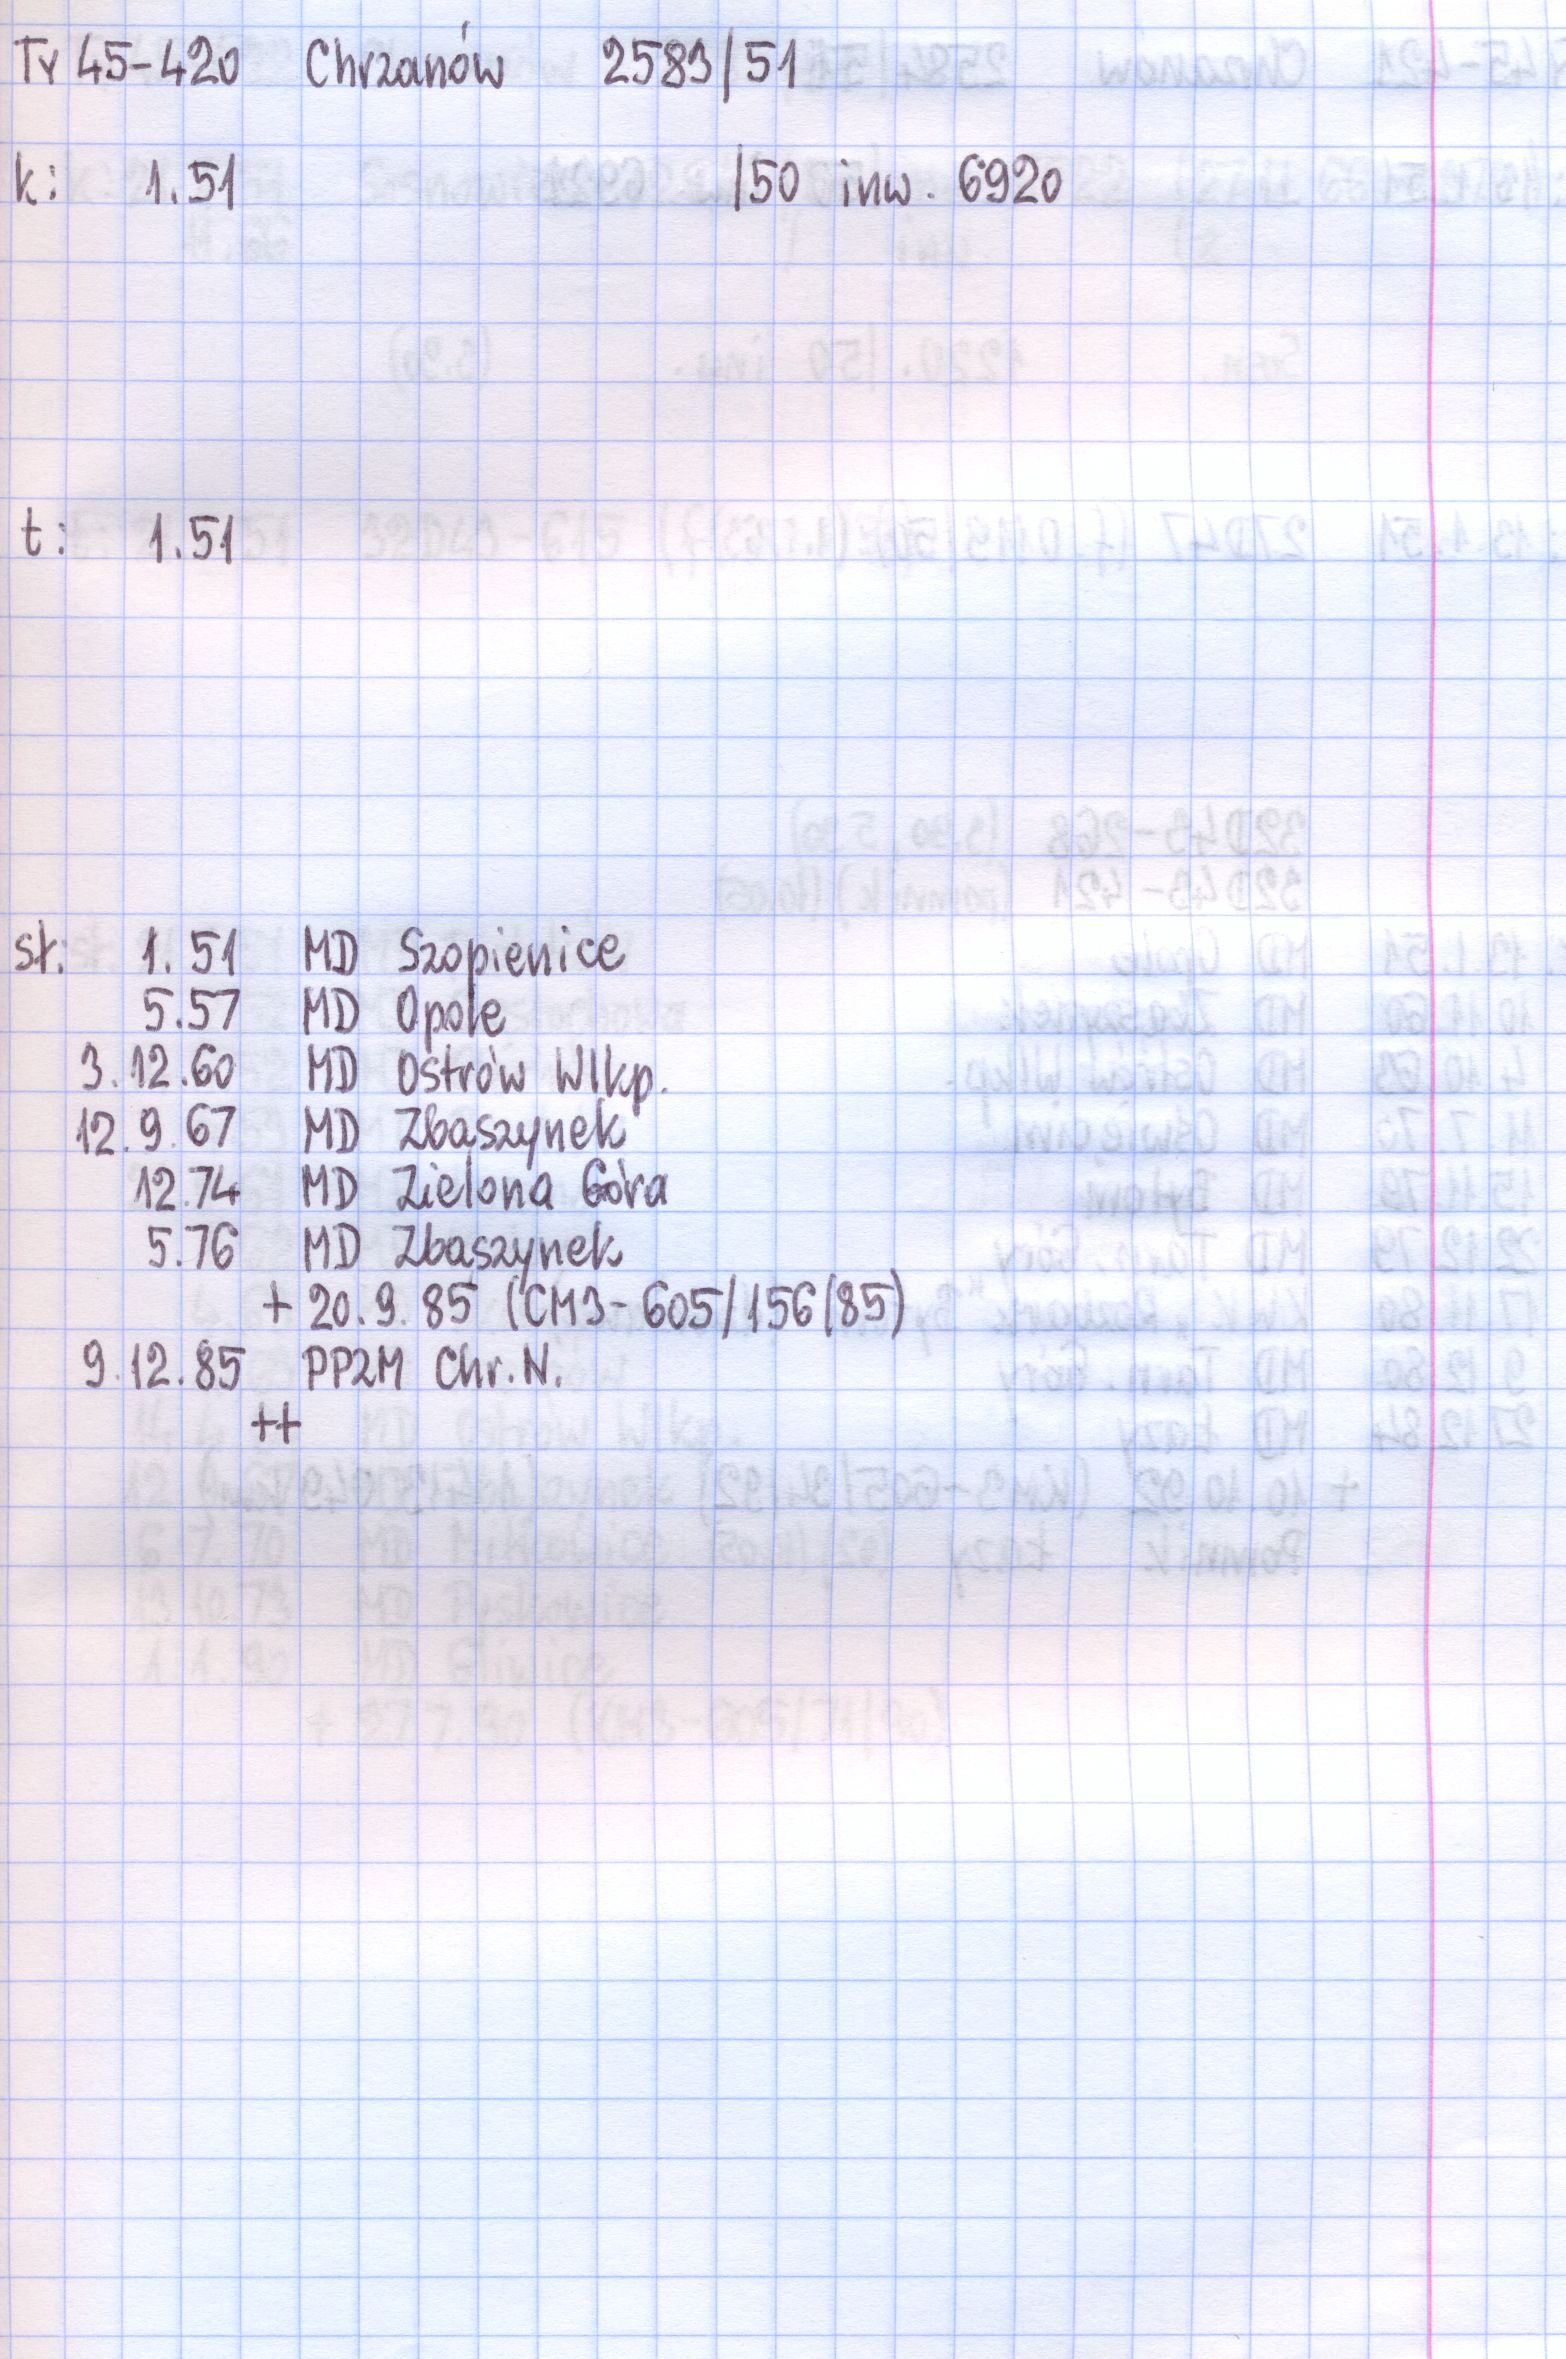 Ty 45-420 Chrzanów 2583/51
k: 1.51 /50 inw. 6920
t: 1.51
st: 1.51 MD Szopienice
5.57 MD Opole
3.12.60 MD Ostrów Wlkp.
12.9.67 MD Zbąszynek
12.74 MD Zielona Góra
5.76 MD Zbąszynek
+ 20.9.85 (CM3-605/156/85)
9.12.85 PPZM Chr.N.
++